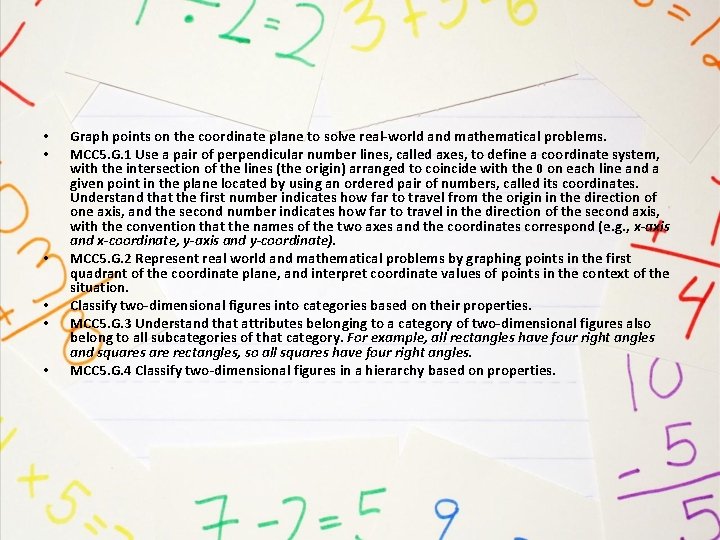 ÷2=2
3+3-6
=
• Graph points on the coordinate plane to solve real-world and mathematical problems.
• MCC5.G.1 Use a pair of perpendicular number lines, called axes, to define a coordinate system,
with the intersection of the lines (the origin) arranged to coincide with the 0 on each line and a
given point in the plane located by using an ordered pair of numbers, called its coordinates.
Understand that the first number indicates how far to travel from the origin in the direction of
one axis, and the second number indicates how far to travel in the direction of the second axis,
with the convention that the names of the two axes and the coordinates correspond (e.g., x-axis
and x-coordinate, y-axis and y-coordinate).
• MCC5.G.2 Represent real world and mathematical problems by graphing points in the first
quadrant of the coordinate plane, and interpret coordinate values of points in the context of the
situation.
• Classify two-dimensional figures into categories based on their properties.
• MCC5.G.3 Understand that attributes belonging to a category of two-dimensional figures also
belong to all subcategories of that category. For example, all rectangles have four right angles
and squares are rectangles, so all squares have four right angles.
• MCC5.G.4 Classify two-dimensional figures in a hierarchy based on properties.
+ 1
4
10
- 5
5
+5=
7-2=5
9